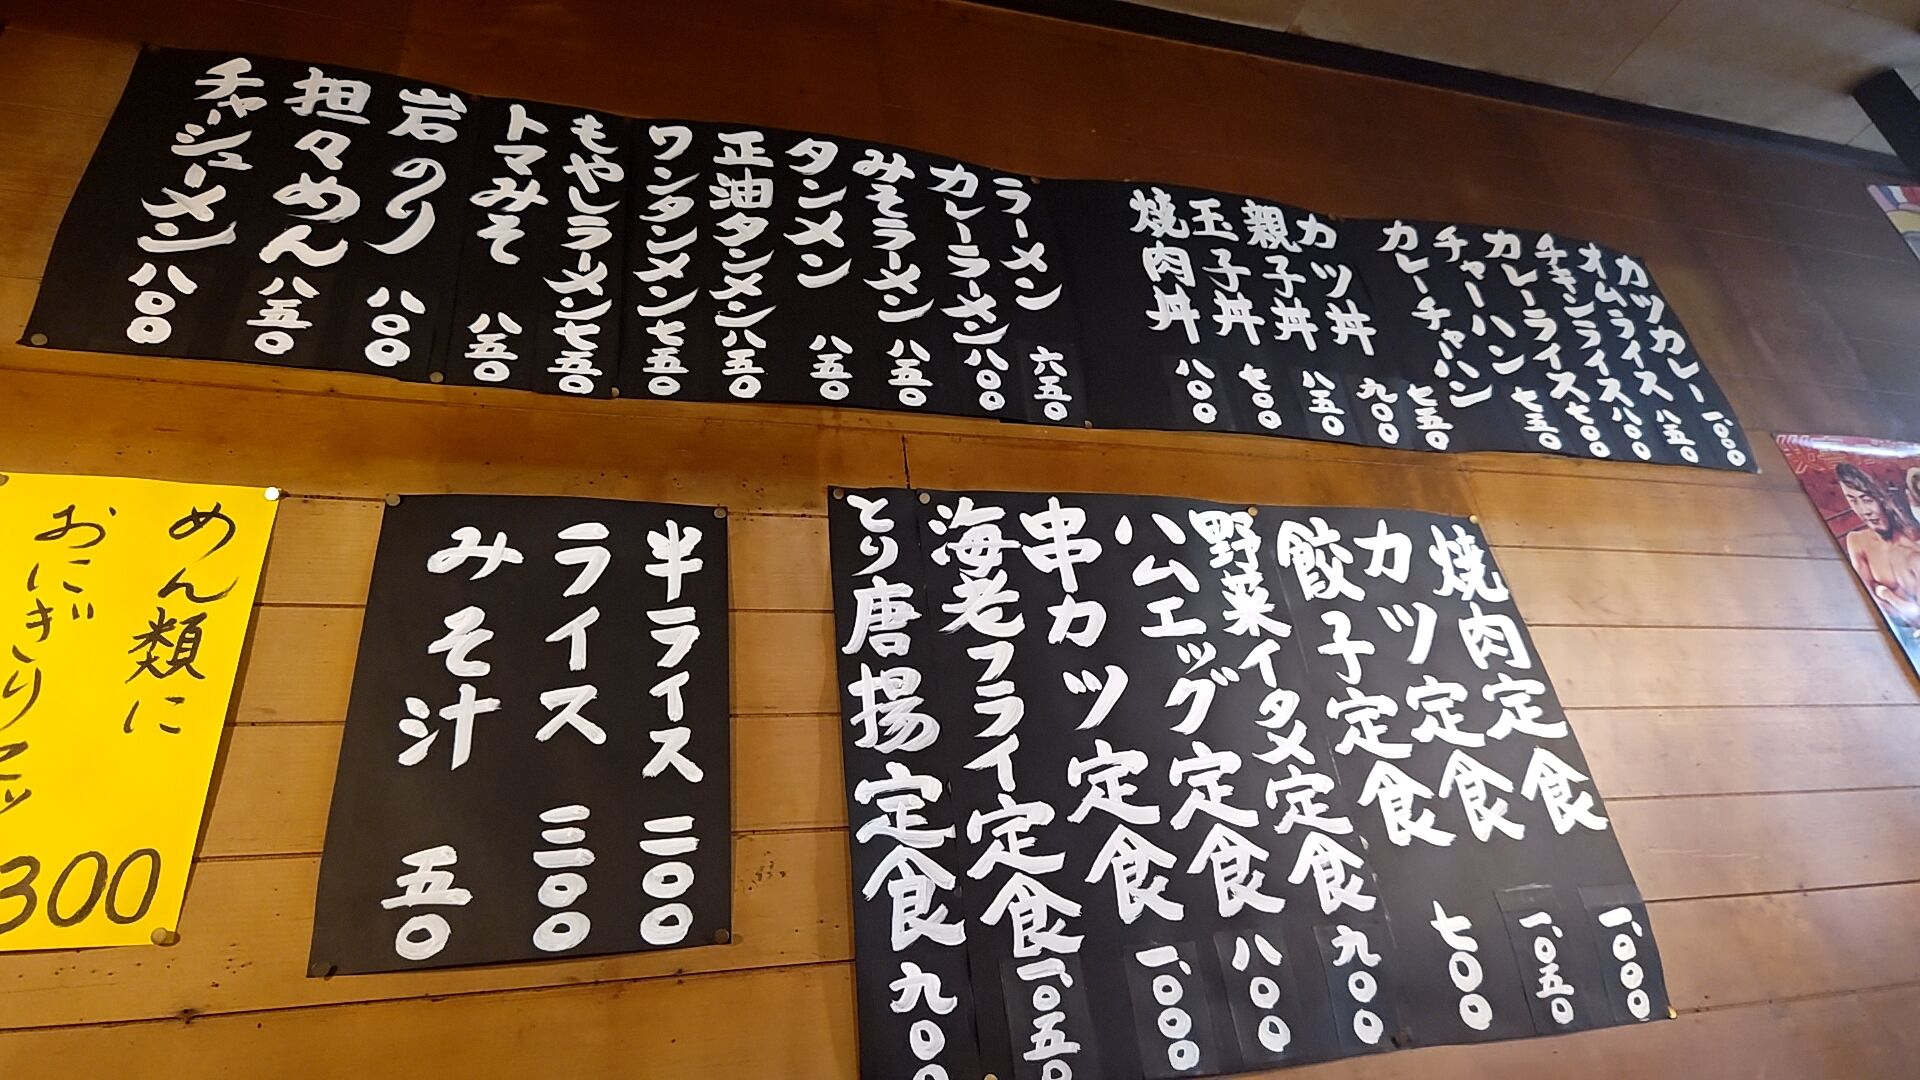 カツカレー 一、〇〇〇
オムライス 八五〇
チキンライス 八〇〇
カレーライス 七〇〇
チャーハン 七五〇
カレーチャーハン 七五〇
カツ丼 九〇〇
親子丼 八五〇
玉子丼 七〇〇
焼肉丼 八〇〇
ラーメン 六五〇
カレーラーメン 八〇〇
みそラーメン 八五〇
タンメン 八五〇
正油タンメン 八五〇
ワンタンメン 七五〇
もやしラーメン 七五〇
トマみそ 八五〇
岩のり 八〇〇
担々めん 八五〇
チャーシューメン 八〇〇
焼肉定食 一、〇〇〇
カツ定食 一、〇五〇
餃子定食 七〇〇
野菜イタメ定食 九〇〇
ハムエッグ定食 八〇〇
串カツ定食 一、〇〇〇
海老フライ定食 一、〇五〇
とり唐揚定食 九〇〇
半ライス 二〇〇
ライス 三〇〇
みそ汁 五〇
めん類に
おにぎり二ッ
300